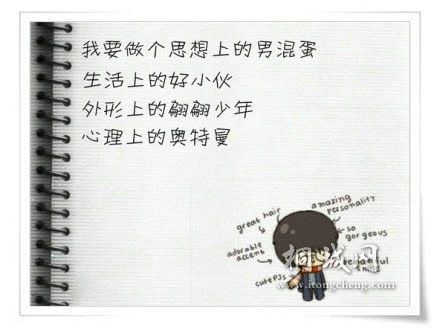 我要做个思想上的男混蛋
生活上的好小伙
外形上的翩翩少年
心理上的奥特曼
amazing
personality
great hair
so
gorgeous
adorable
accent
beautiful
smile
cute PJs
桐城网
www.itongcheng.com